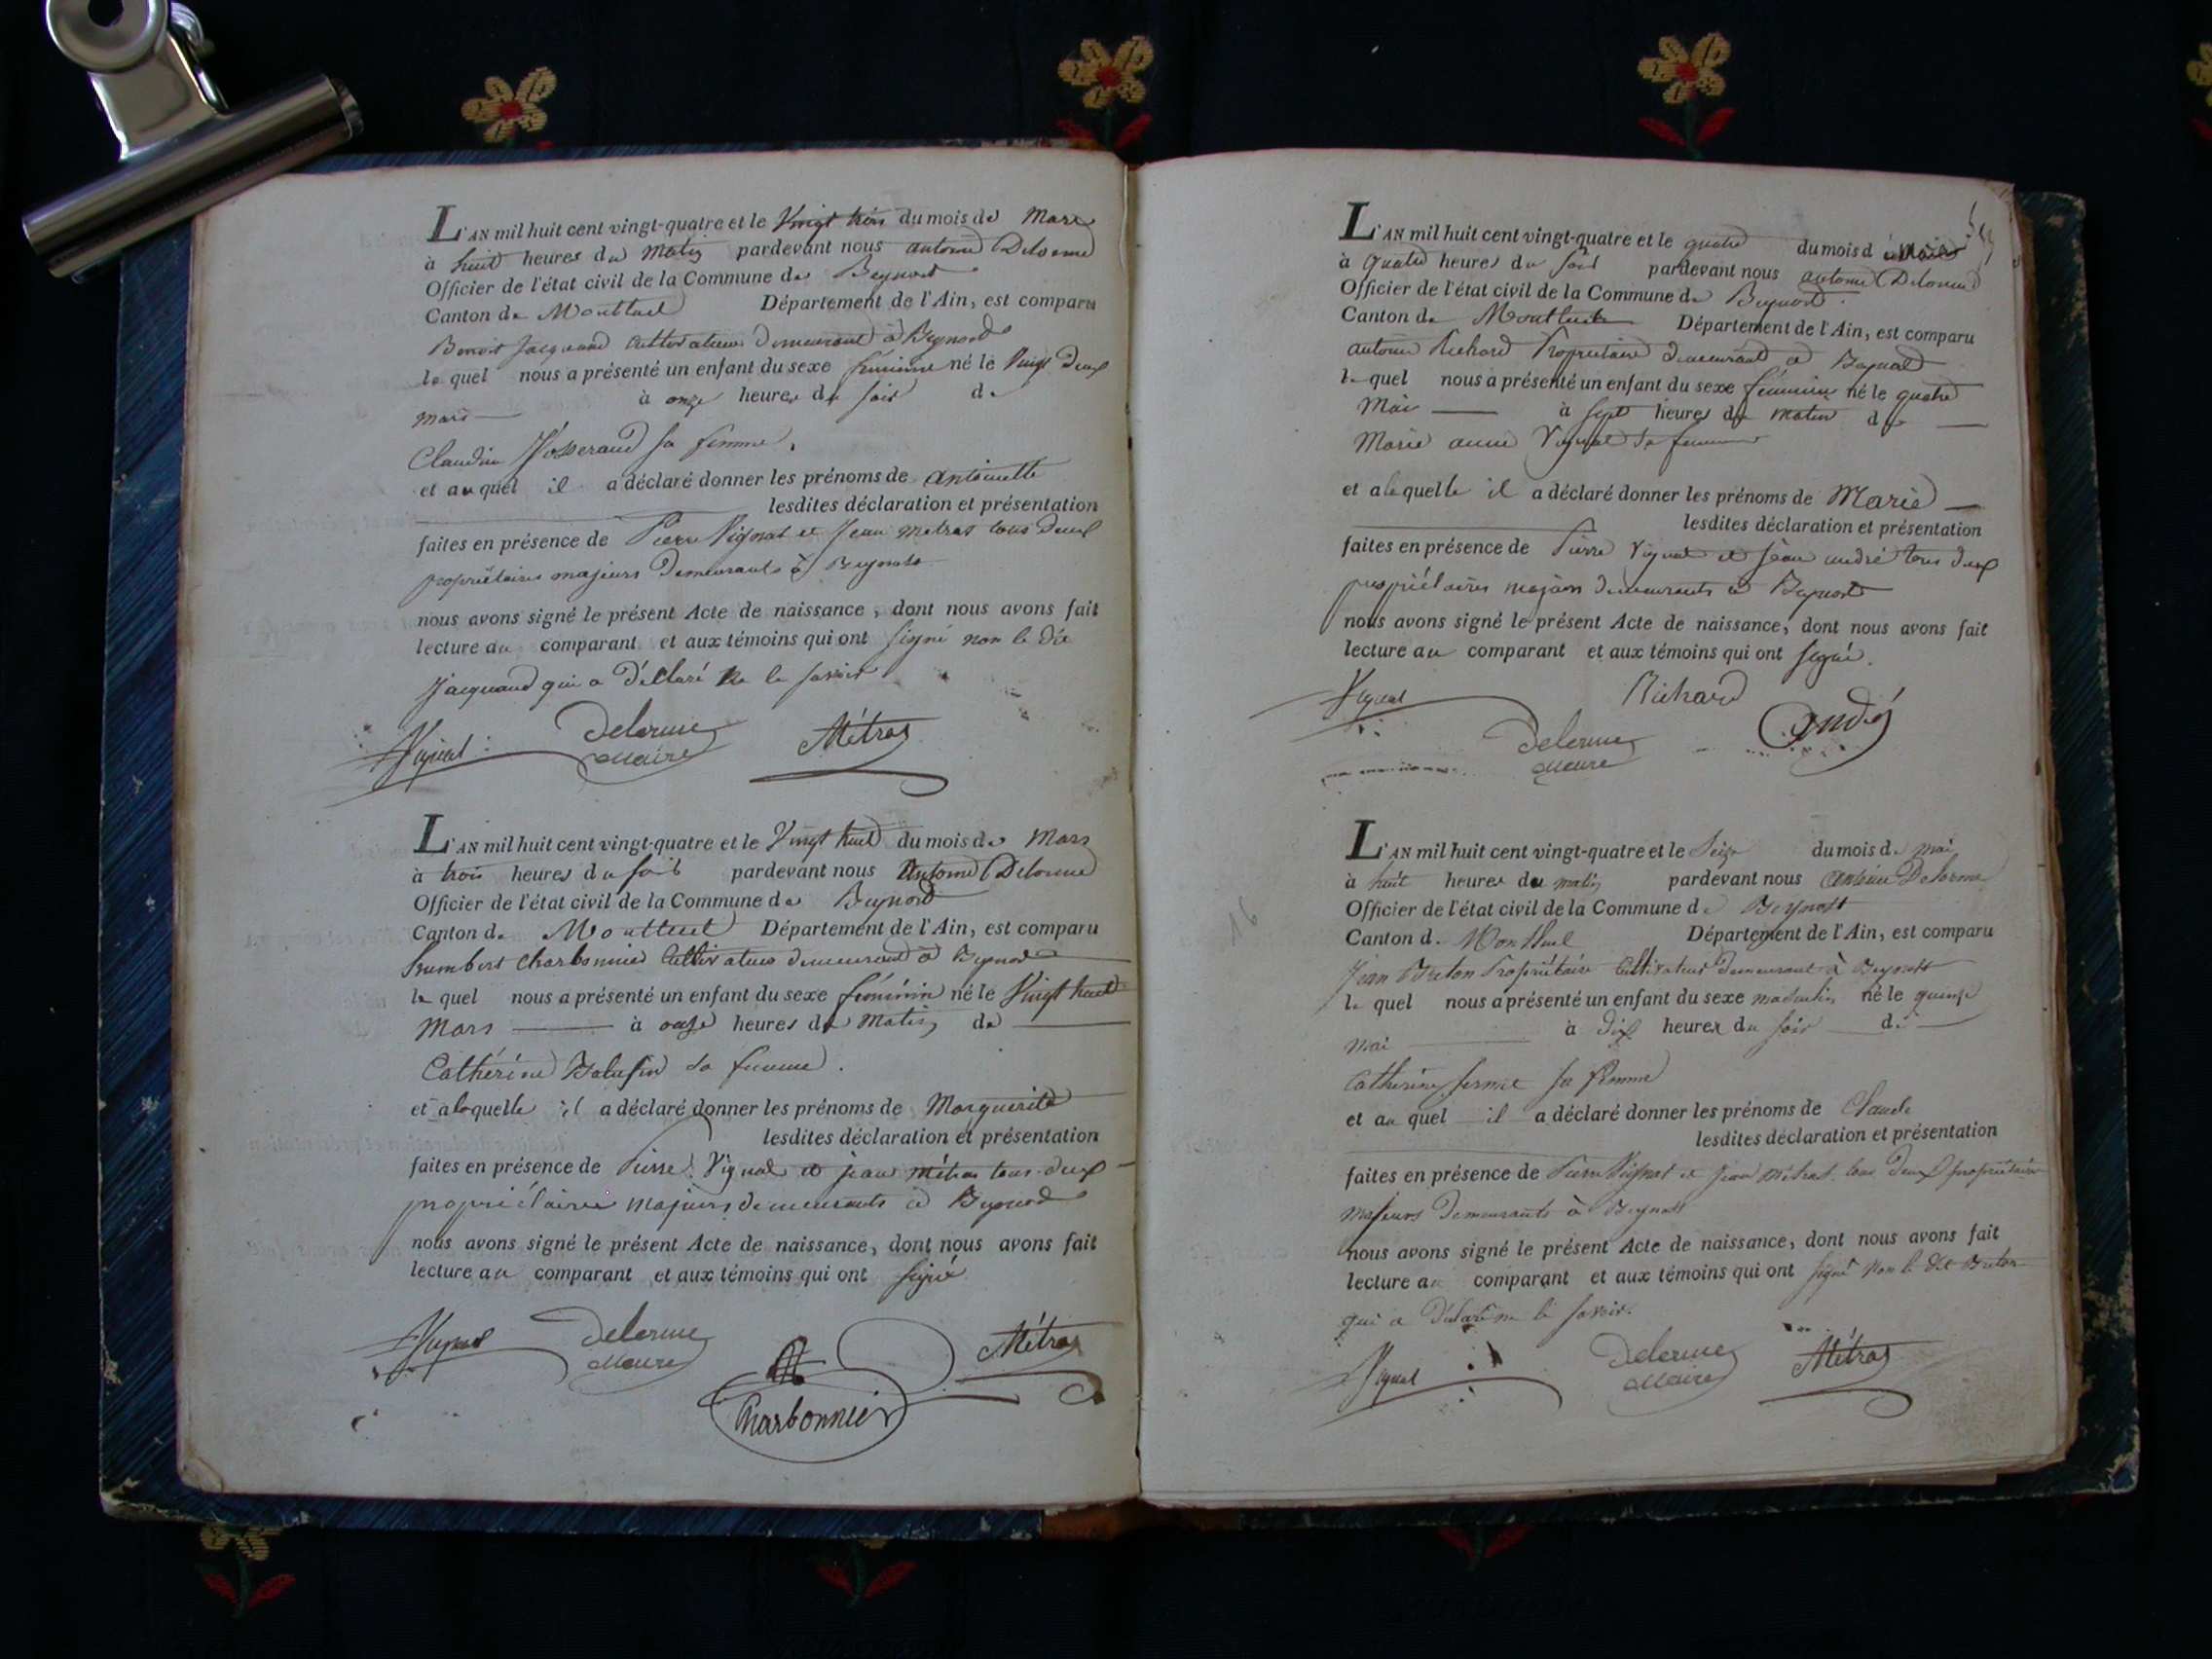 L'AN mil huit cent vingt-quatre et le Vingt trois du mois de Mars
à huit heures du Matin pardevant nous antoine Delorme
Officier de l'état civil de la Commune de Beynost
Canton de Montluel Département de l'Ain, est comparu
Benoit Jacquand Cultivateur demeurant à Beynost
lequel nous a présenté un enfant du sexe féminin né le Vingt Deux
mars à onze heures du soir de
Claudine Josserand sa femme,
et auquel il a déclaré donner les prénoms de antoinette
lesdites déclaration et présentation
faites en présence de Pierre Vignat et Jean metras tous deux
propriétaires majeurs Demeurants à Beynost
nous avons signé le présent Acte de naissance, dont nous avons fait
lecture au comparant et aux témoins qui ont signé non le dit
Jacquand qui a déclaré ne le savoir
Vignat Delorme Métras
Maire
L'AN mil huit cent vingt-quatre et le Vingt huit du mois de Mars
à trois heures du soir pardevant nous Antoine Delorme
Officier de l'état civil de la Commune de Beynost
Canton de Montluel Département de l'Ain, est comparu
humbert Charbonnier Cultivateur demeurant à Beynost
lequel nous a présenté un enfant du sexe féminin né le Vingt huit
Mars à onze heures du Matin de
Cathérine sa femme.
et a laquelle il a déclaré donner les prénoms de Marguerite
lesdites déclaration et présentation
faites en présence de Pierre Vignat et jean métras tous deux
propriétaires majeurs demeurants à Beynost
nous avons signé le présent Acte de naissance, dont nous avons fait
lecture au comparant et aux témoins qui ont signé
Vignat Delorme Métras
Maire
Charbonnier
L'AN mil huit cent vingt-quatre et le quatre du mois de Mai
à quatre heures du soir pardevant nous antoine Delorme
Officier de l'état civil de la Commune de Beynost.
Canton de Montluel Département de l'Ain, est comparu
antoine Richard Propriétaire demeurant à Beynost
lequel nous a présenté un enfant du sexe féminin né le quatre
Mai à sept heures du matin de
Marie anne Vignat sa femme
et a laquelle il a déclaré donner les prénoms de Marie
lesdites déclaration et présentation
faites en présence de Pierre Vignat et jean andré tous deux
propriétaires majeurs demeurants à Beynost
nous avons signé le présent Acte de naissance, dont nous avons fait
lecture au comparant et aux témoins qui ont signé.
Vignat Richard andré
Delorme
Maire
L'AN mil huit cent vingt-quatre et le Seize du mois de mai
à huit heures du matin pardevant nous antoine Delorme
Officier de l'état civil de la Commune de Beynost
Canton de Montluel Département de l'Ain, est comparu
16
Jean Breton Propriétaire Cultivateur Demeurant à Beynost
lequel nous a présenté un enfant du sexe masculin né le quinze
mai à dix heures du soir de
Catherine ferme sa femme
et auquel il a déclaré donner les prénoms de Claude
lesdites déclaration et présentation
faites en présence de Pierre Vignat et jean Métras tous deux propriétaires
majeurs Demeurants à Beynost
nous avons signé le présent Acte de naissance, dont nous avons fait
lecture au comparant et aux témoins qui ont signé non le dit Breton
qui a déclaré ne le savoir.
Vignat Delorme Métras
Maire